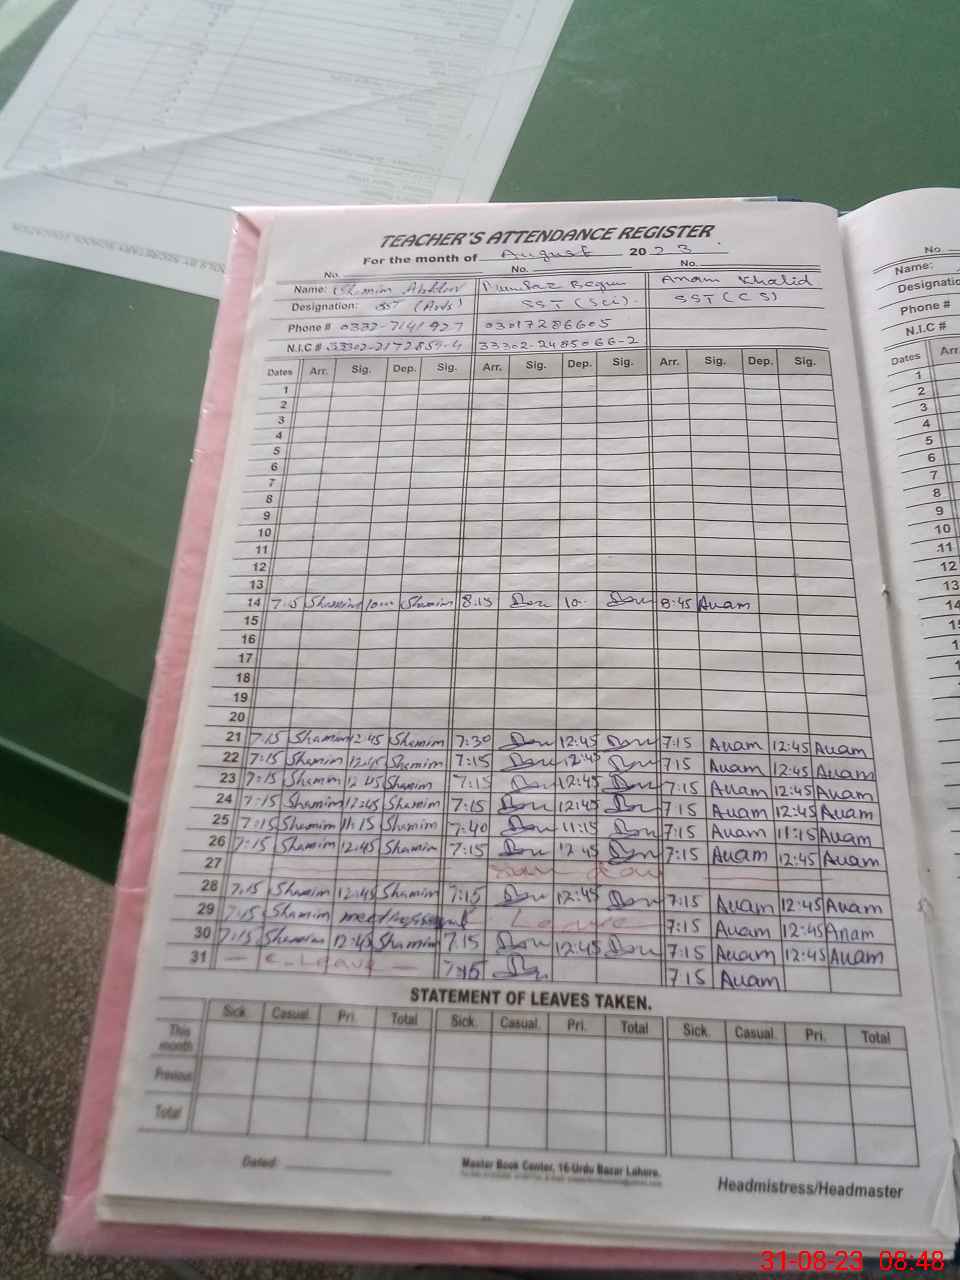 TEACHER'S ATTENDANCE REGISTER
For the month of August 2023
No. No. No.
Name: Shamim Akhtar Mumtaz Begum Anam Khalid
Designation: SST (Arts) SST (Sci). SST (CS)
Phone # 0332-7141927 03017286605
N.I.C # 33302-2172859-4 33302-2485066-2
Dates Arr. Sig. Dep. Sig. Arr. Sig. Dep. Sig. Arr. Sig. Dep. Sig.
1
2
3
4
5
6
7
8
9
10
11
12
13
14 7:15 Shamim 10 Shamim 8:15 10 8:45 Anam
15
16
17
18
19
20
21 7:15 Shamim 12:45 Shamim 7:30 12:45 7:15 Anam 12:45 Anam
22 7:15 Shamim 12:45 Shamim 7:15 12:45 7:15 Anam 12:45 Anam
23 7:15 Shamim 12:45 Shamim 7:15 12:45 7:15 Anam 12:45 Anam
24 7:15 Shamim 12:45 Shamim 7:15 12:45 7:15 Anam 12:45 Anam
25 7:15 Shamim 11:15 Shamim 7:40 11:15 7:15 Anam 11:15 Anam
26 7:15 Shamim 12:45 Shamim 7:15 12:45 7:15 Anam 12:45 Anam
27
28 7:15 Shamim 12:45 Shamim 7:15 12:45 7:15 Anam 12:45 Anam
29 7:15 Shamim Leave 7:15 Anam 12:45 Anam
30 7:15 Shamim 12:45 Shamim 7.15 12:45 7:15 Anam 12:45 Anam
31 — C-Leave — 7:15 7:15 Anam
STATEMENT OF LEAVES TAKEN.
Sick. Casual. Pri. Total Sick. Casual. Pri. Total Sick. Casual. Pri. Total
This month
Previous
Total
Dated:
Master Book Center, 16-Urdu Bazar Lahore.
Headmistress/Headmaster
No.
Name:
Designatio
Phone #
N.I.C #
Dates Arr.
1
2
3
4
5
6
7
8
9
10
11
12
13
14
31-08-23 08:48